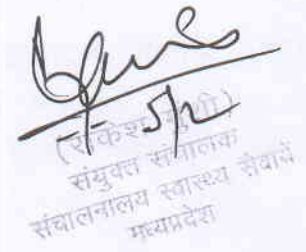 5/2
(राकेश मुंशी)
संयुक्त संचालक
संचालनालय स्वास्थ्य सेवायें
मध्यप्रदेश